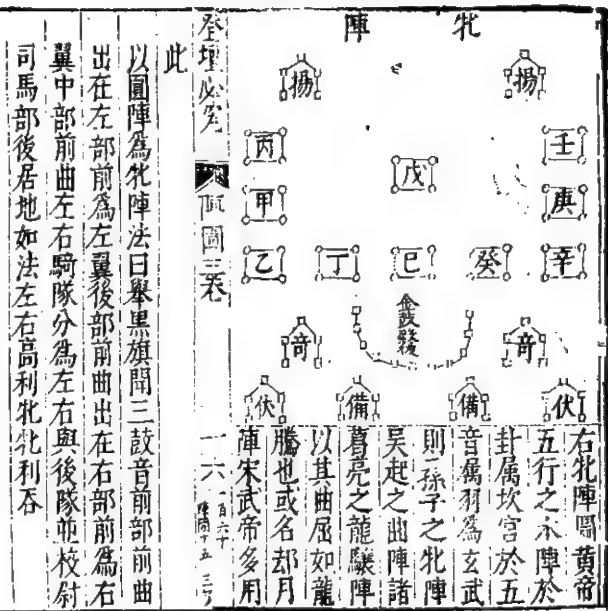 牝陣
揚 揚
壬 戊 丙
庚 甲
辛 癸 巳 丁 乙
金鼓殿後
奇 奇
伏 備 備 伏
右牝陣圖黄帝
五行之水陣於
卦属坎宮於五
音属羽爲玄武
則孫子之牝陣
吳起之曲陣諸
葛亮之龍驤陣
以其曲屈如龍
騰也或名却月
陣宋武帝多用
登壇必究 圖三卷 一六
一百六十
陣圖十五
此
以圓陣爲牝陣法曰舉黑旗開三鼓音前部前曲
出在左部前爲左翼後部前曲出在右部前爲右
翼中部前曲左右騎隊分爲左右與後隊並校尉
司馬部後居地如法左右高利牝牝利吞